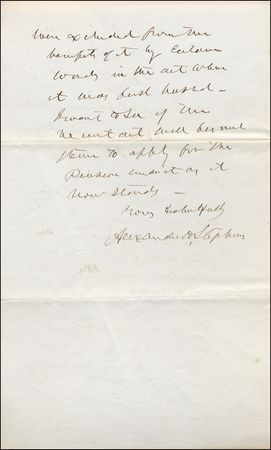 were excluded from the
benefits of it by certain
words in the act when
it was first passed –
I want to see if the
act will permit
them to apply for the
Pension under as it
now stands –
Yours
Alexander H. Stephens